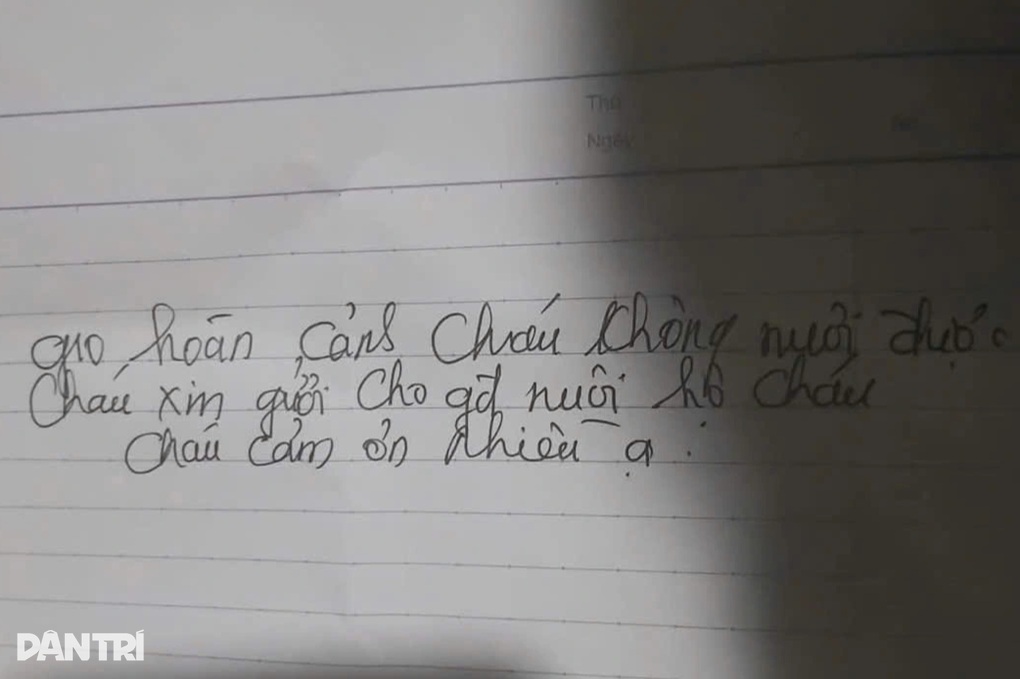 Thứ
Ngày
No:
gio hoãn cảnh Cháu không nuôi được
Cháu xin gửi cho gđ nuôi hộ cháu
Cháu cảm ơn nhiều ạ.
DÂN TRÍ